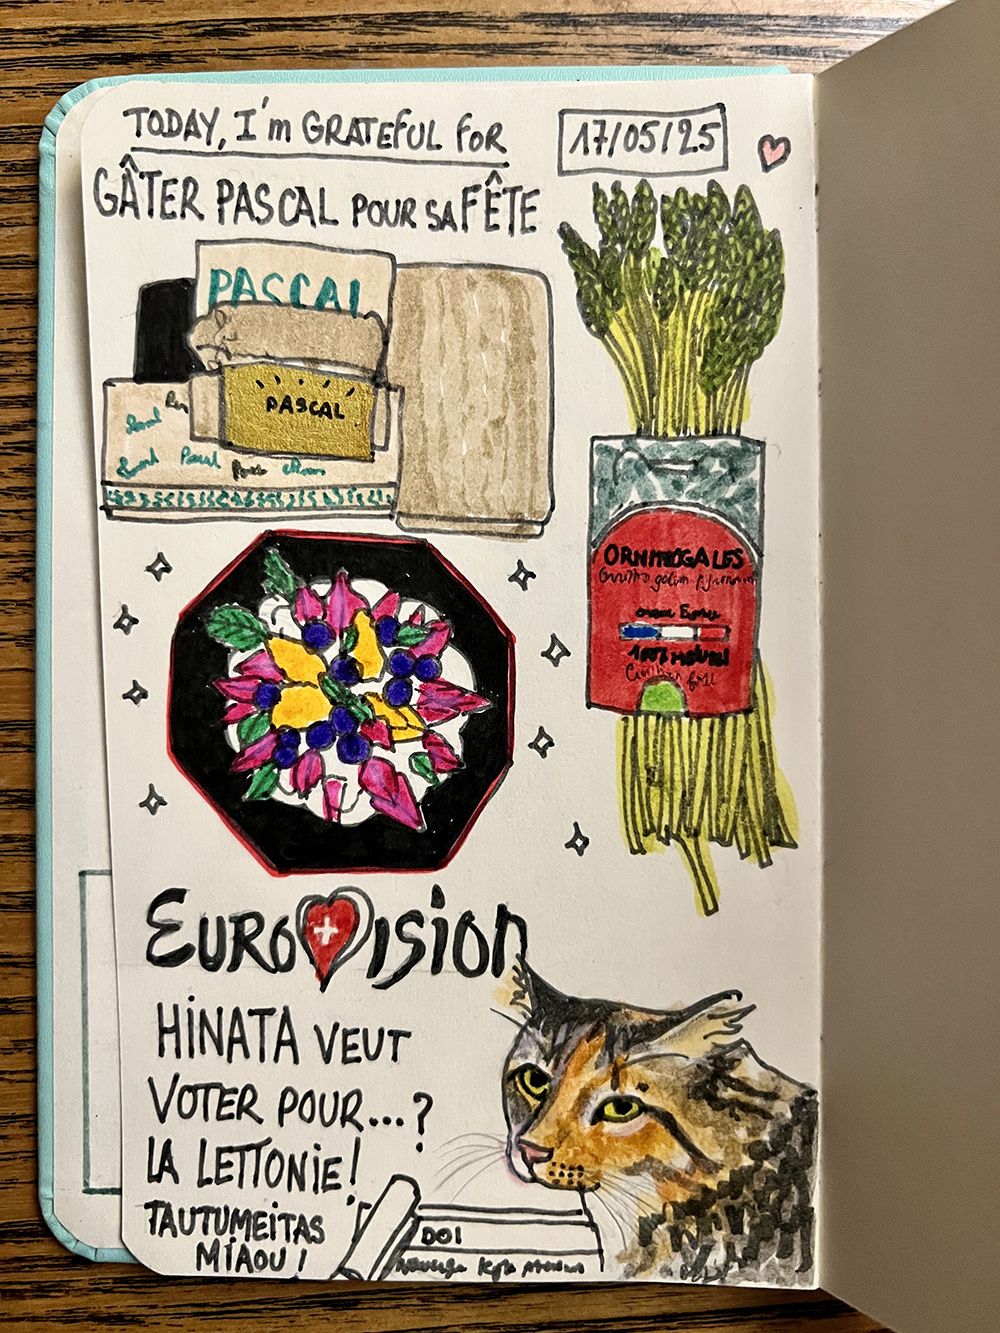 TODAY, I'm GRATEFUL FOR
17/05/25
GÂTER PASCAL POUR SA FÊTE
PASCAL
PASCAL
Pascal
ORNITHOGALES
100% naturel
EUROVISION
HINATA VEUT
VOTER POUR...?
LA LETTONIE!
TAUTUMEITAS
MIAOU!
DOI